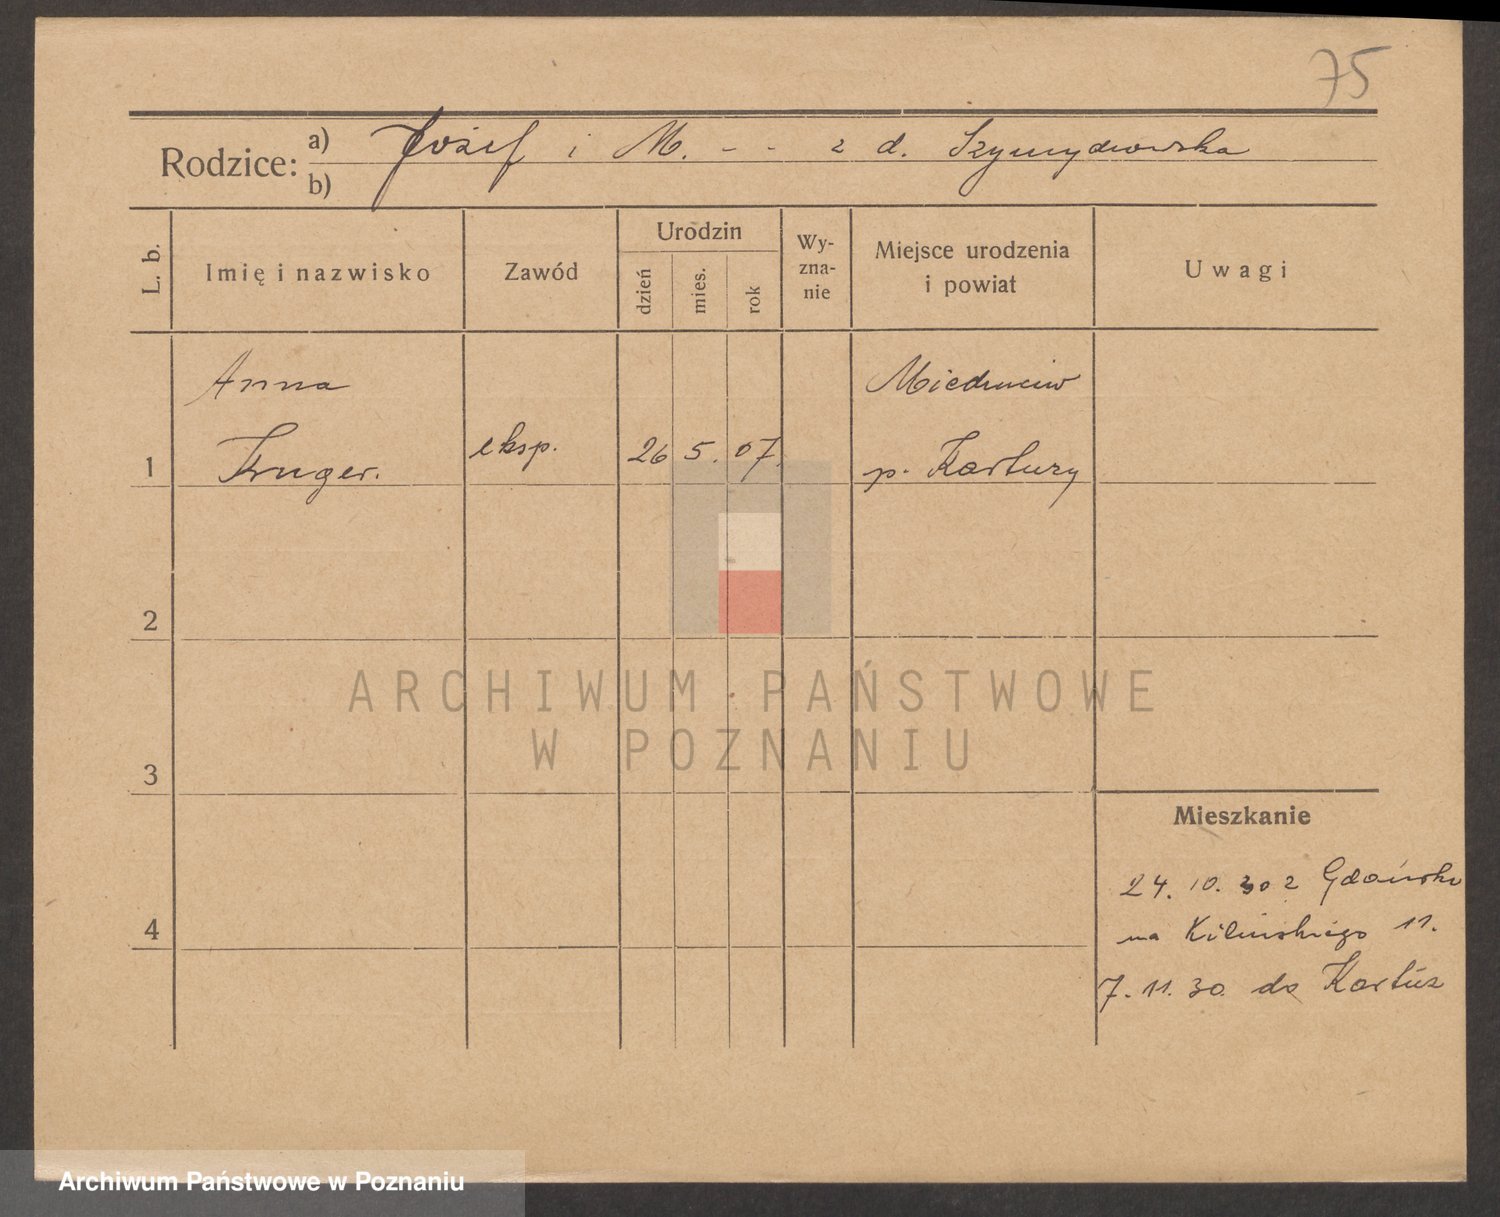 75
Rodzice:
a) Józef i M. - - z d.
b)
L. b.
Imię i nazwisko
Zawód
Urodzin
dzień
mies.
rok
Wy-
zna-
nie
Miejsce urodzenia
i powiat
Uwagi
Anna
1 Kruger. eksp. 26 5. 07. p. Kartuzy
2
3
4
ARCHIWUM PAŃSTWOWE
W POZNANIU
Mieszkanie
24. 10. 30 z Gdańska
na Kilińskiego 11.
7. 11. 30 do Kartuz
Archiwum Państwowe w Poznaniu